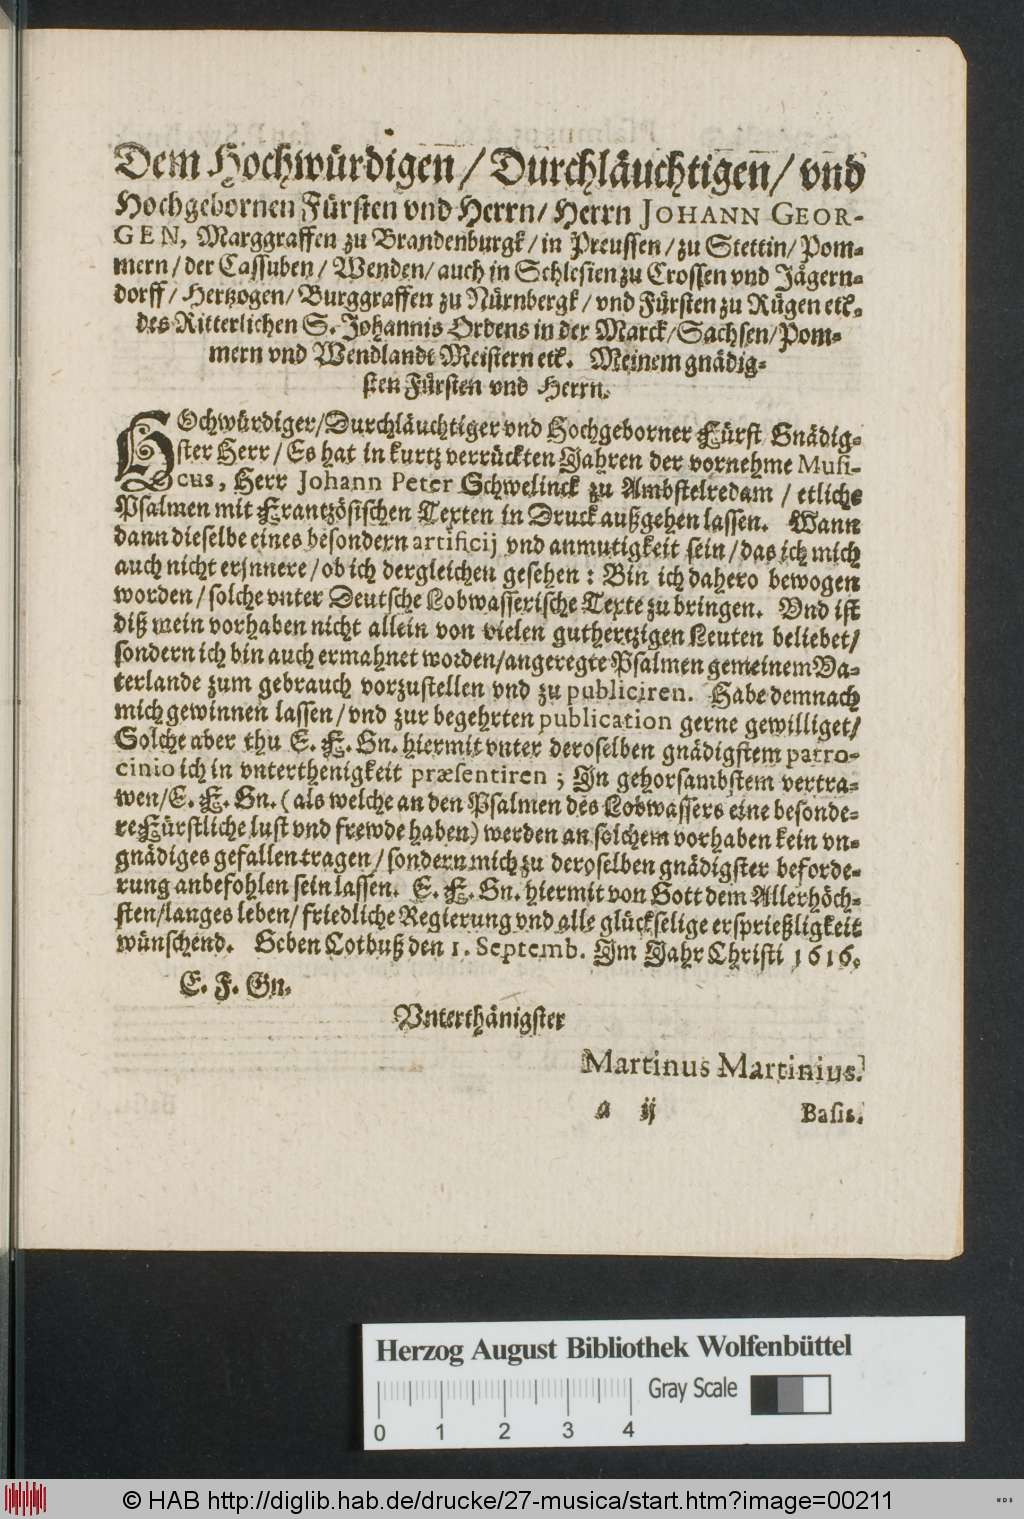 Dem Hochwürdigen / Durchläuchtigen / vnd
Hochgebornen Fürsten vnd Herrn / Herrn JOHANN GEOR-
GEN, Marggraffen zu Brandenburgk / in Preussen / zu Stettin / Pom-
mern / der Cassuben / Wenden / auch in Schlesien zu Crossen vnd Jägern-
dorff / Hertzogen / Burggraffen zu Nürnbergk / vnd Fürsten zu Rügen etc.
des Ritterlichen S. Johannis Ordens in der Marck / Sachsen / Pom-
mern vnd Wendlandt Meistern etc. Meinem gnädig-
sten Fürsten vnd Herrn.
HOchwürdiger / Durchläuchtiger vnd Hochgeborner Fürst Gnädig-
ster Herr / Es hat in kurtz verrückten Jahren der vornehme Musi-
cus, Herr Johann Peter Schwelinck zu Ambstelredam / etliche
Psalmen mit Frantzösischen Texten in Druck außgehen lassen. Wann
dann dieselbe eines besondern artificij vnd anmutigkeit sein / das ich mich
auch nicht erjnnere / ob ich dergleichen gesehen : Bin ich dahero bewogen
worden / solche vnter Deutsche Lobwasserische Texte zu bringen. Vnd ist
diß mein vorhaben nicht allein von vielen guthertzigen Leuten beliebet /
sondern ich bin auch ermahnet worden / angeregte Psalmen gemeinem Va-
terlande zum gebrauch vorzustellen vnd zu publiciren. Habe demnach
mich gewinnen lassen / vnd zur begehrten publication gerne gewilliget /
Solche aber thu E. F. Gn. hiermit vnter deroselben gnädigstem patro-
cinio ich in vnterthenigkeit præsentiren ; Jn gehorsambstem vertra-
wen / E. F. Gn. ( als welche an den Psalmen des Lobwassers eine besonde-
re Fürstliche lust vnd frewde haben) werden an solchem vorhaben kein vn-
gnädiges gefallen tragen / sondern mich zu deroselben gnädigster beforde-
rung anbefohlen sein lassen. E. F. Gn. hiermit von Gott dem Allerhöch-
sten / langes leben / friedliche Regierung vnd alle glückselige ersprießligkeit
wünschend. Geben Cotbuß den 1. Septemb. Jm Jahr Christi 1616.
E. F. Gn.
Vnterthänigster
Martinus Martinius.
a ij Basis.
Herzog August Bibliothek Wolfenbüttel
Gray Scale
0 1 2 3 4
© HAB http://diglib.hab.de/drucke/27-musica/start.htm?image=00211